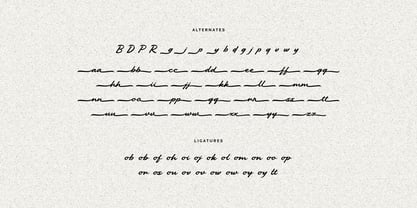 ALTERNATES
B D P R g j p y b d g j p q u w y
aa bb cc dd ee ff gg
hh ii jj kk ll mm
nn oa pp qq rr ss tt
uu vv ww xx yy zz
LIGATURES
ob of oh oi oj ok ol om on oo op
or os ou ov ov ow ow oy oy tt